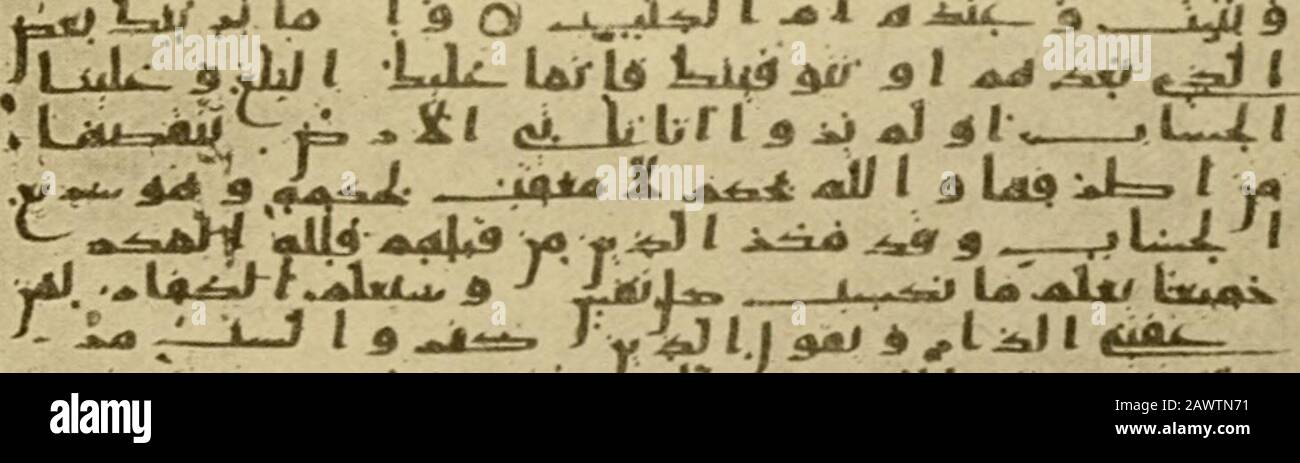 و يثبت و عنده ام الكتب و ا ما نرينك بعض
الذي نعدهم او نتوفينك فانما عليك البلغ و علينا
الحساب او لم يروا انا ناتي الارض ننقصها
من اطرفها و الله يحكم لا معقب لحكمه و هو سريع
الحساب و قد مكر الذين من قبلهم فلله المكر
جميعا يعلم ما تكسب كل نفس و سيعلم الكفار لمن
عقبى الدار و يقول الذين كفروا لست مر
alamy
Image ID: 2AWTN71
www.alamy.com